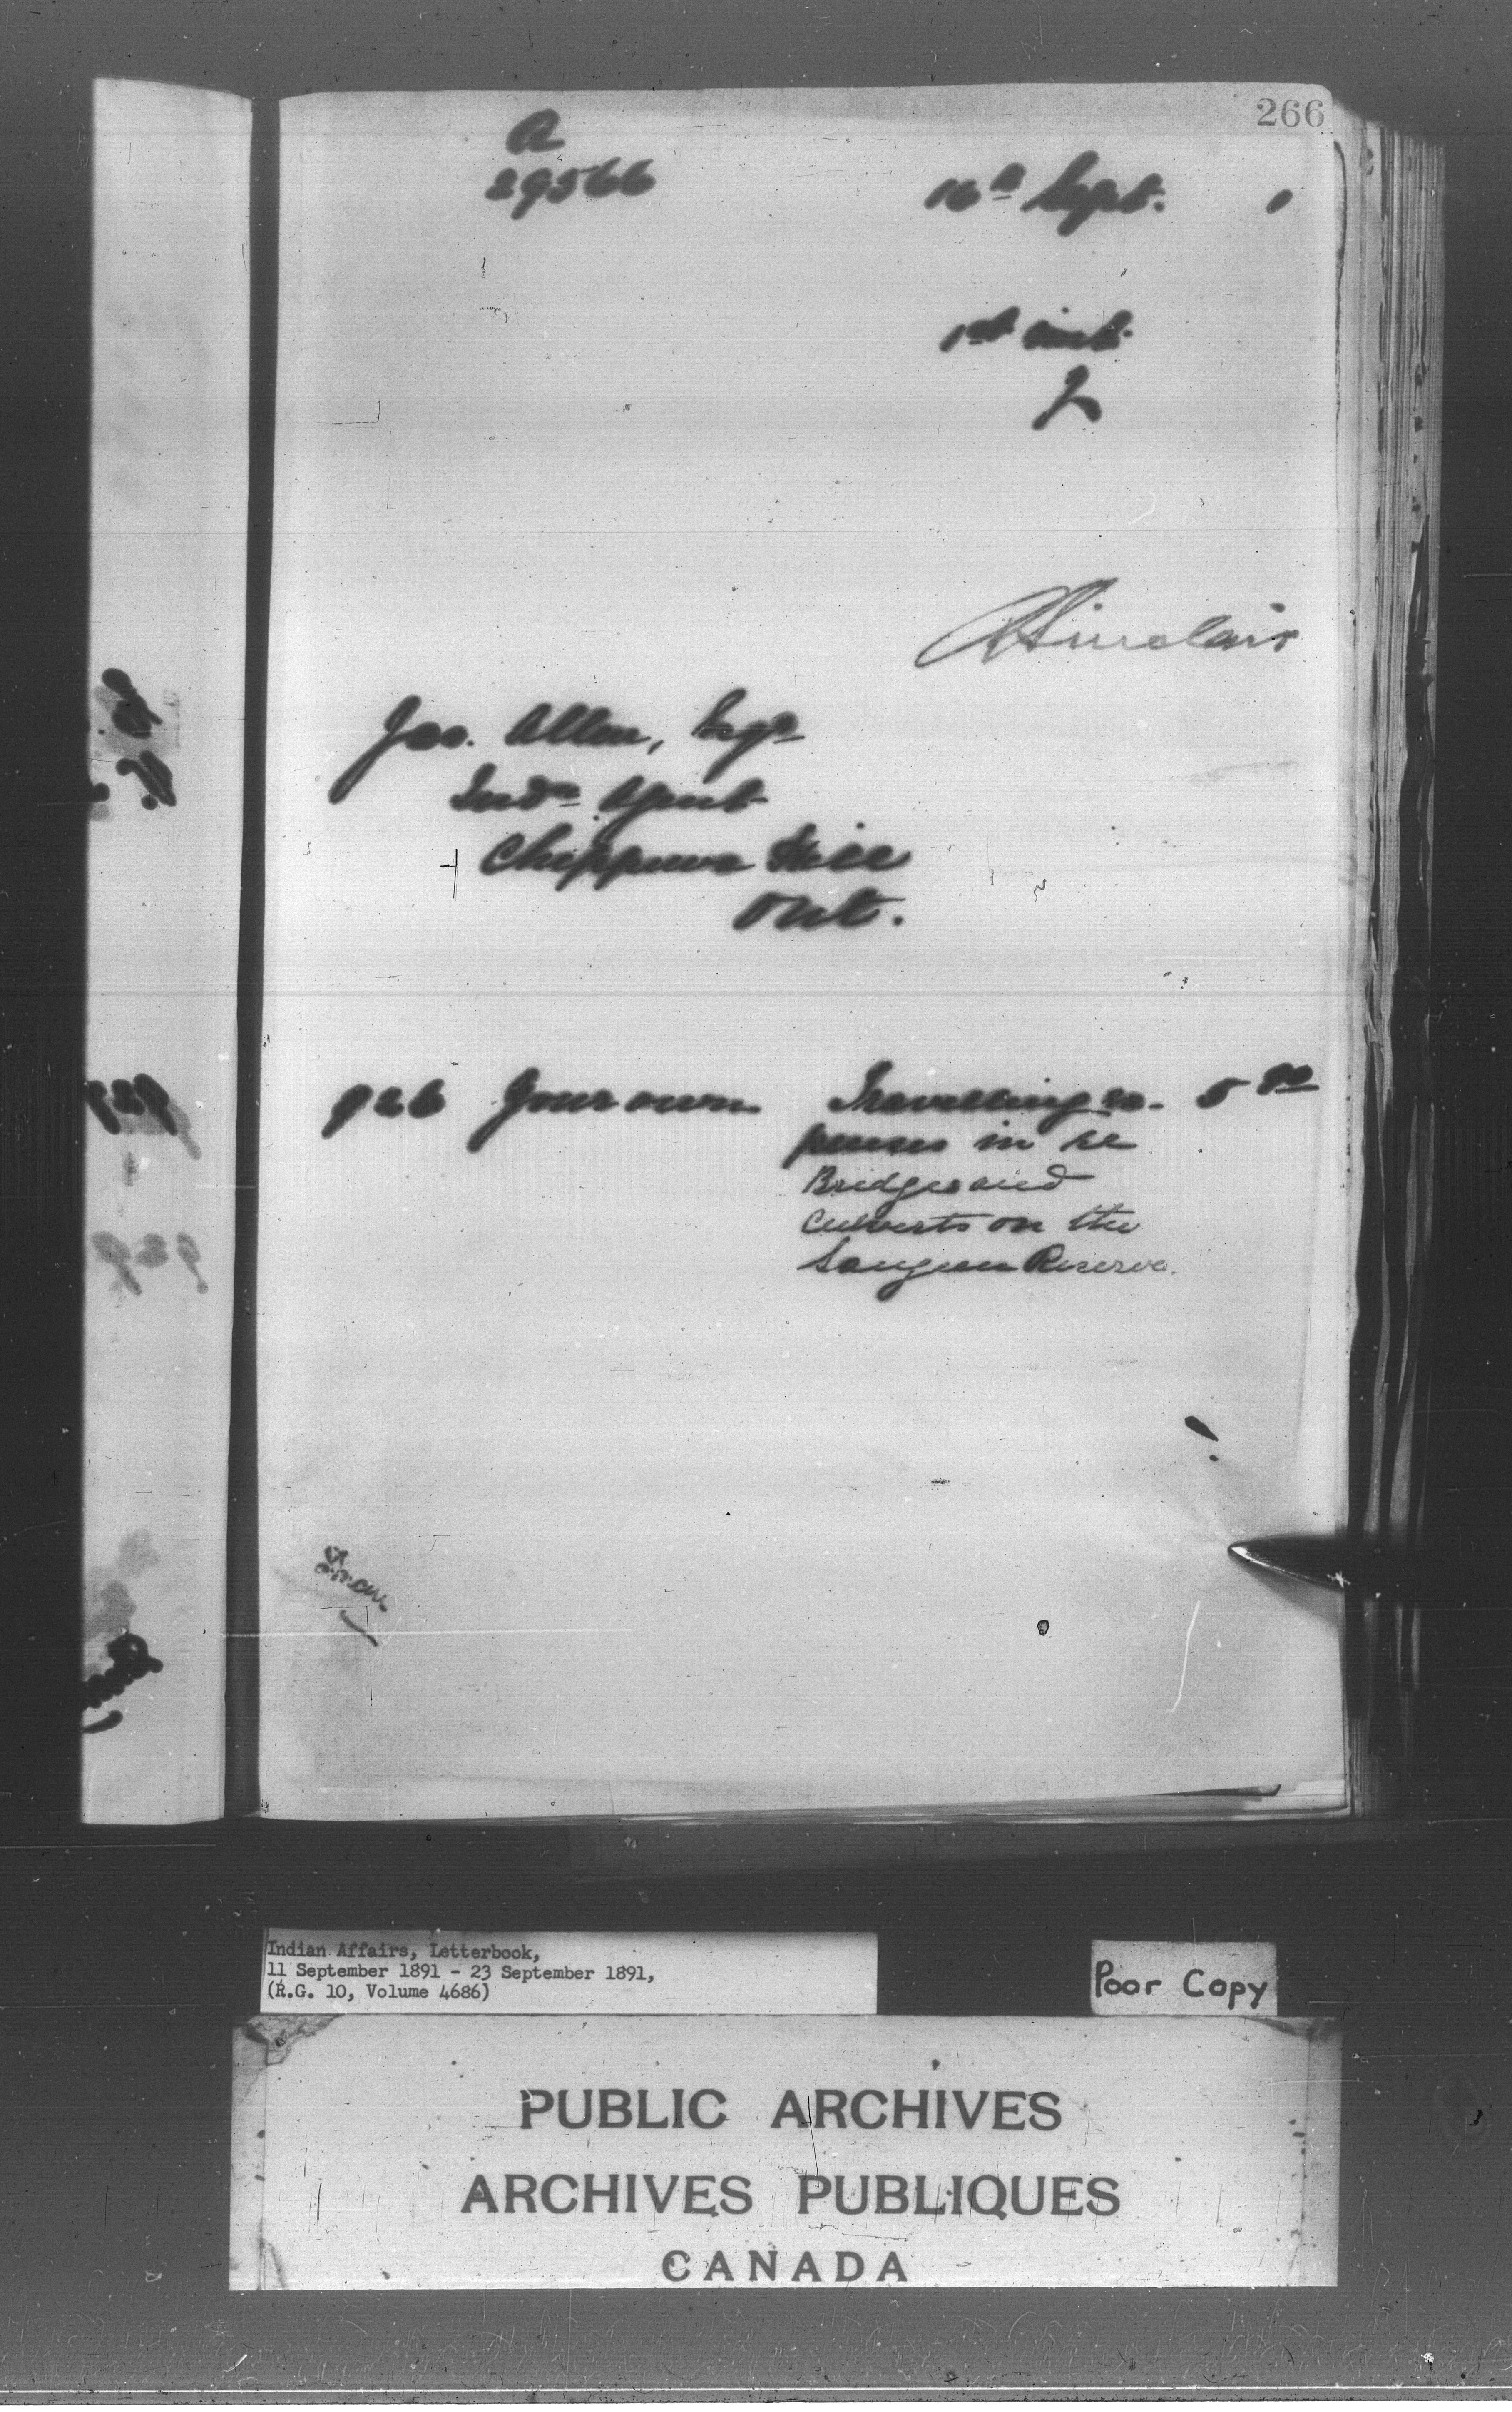 266
A
29566
16th Sept. 1
1st inst.
J
A Sinclair
Jas. Allen, Esqr
Indn Agent
Chippewa Hill
Ont.
926 Your own Travelling ex- 5
penses in re
Bridges and
Culverts on the
Saugeen Reserve.
Indian Affairs, Letterbook,
11 September 1891 - 23 September 1891,
(R.G. 10, Volume 4686)
Poor Copy
PUBLIC ARCHIVES
ARCHIVES PUBLIQUES
CANADA